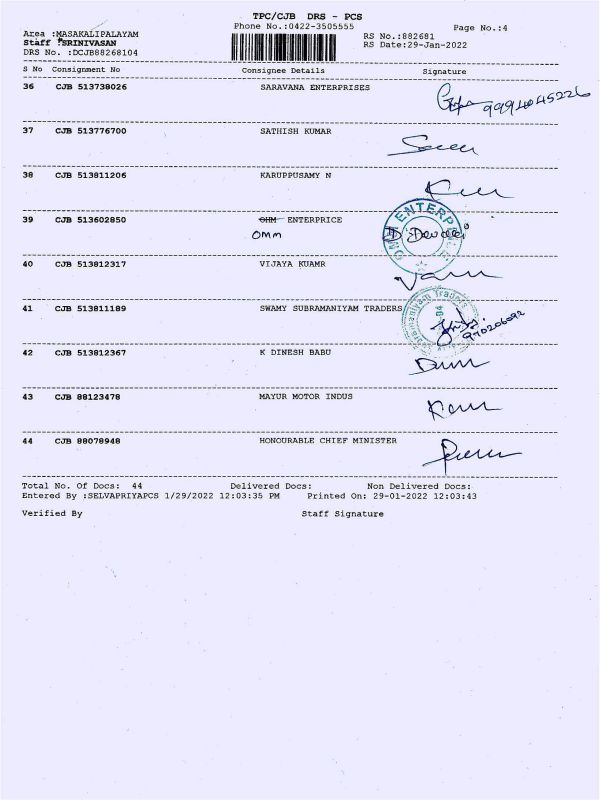 TPC/CJB DRS - PCS
Phone No.:0422-3505555
Page No.:4
Area :MASAKALIPALAYAM
Staff :SRINIVASAN
DRS No. :DCJB88268104
RS No.:882681
RS Date:29-Jan-2022
S No Consignment No Consignee Details Signature
36 CJB 513738026 SARAVANA ENTERPRISES
9994045226
37 CJB 513776700 SATHISH KUMAR
38 CJB 513811206 KARUPPUSAMY N
39 CJB 513602850 OHM ENTERPRICE
OMM
40 CJB 513812317 VIJAYA KUAMR
41 CJB 513811189 SWAMY SUBRAMANIYAM TRADERS
42 CJB 513812367 K DINESH BABU
43 CJB 88123478 MAYUR MOTOR INDUS
44 CJB 88078948 HONOURABLE CHIEF MINISTER
Total No. Of Docs: 44 Delivered Docs: Non Delivered Docs:
Entered By :SELVAPRIYAPCS 1/29/2022 12:03:35 PM Printed On: 29-01-2022 12:03:43
Verified By Staff Signature